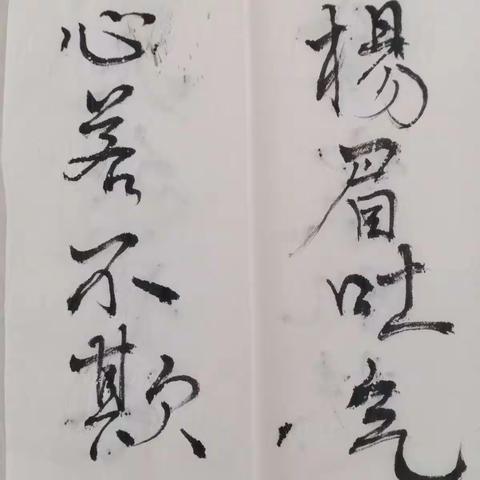 楊眉吐气
心若不欺